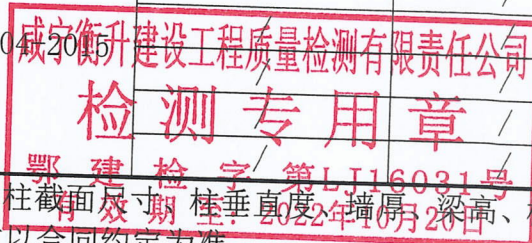 04-2015
咸宁衡升建设工程质量检测有限责任公司
检测专用章
鄂建检字第LJ16031号
有效期至:2022年10月20日
柱截面尺寸、柱垂直度、墙厚、梁高、
以合同约定为准